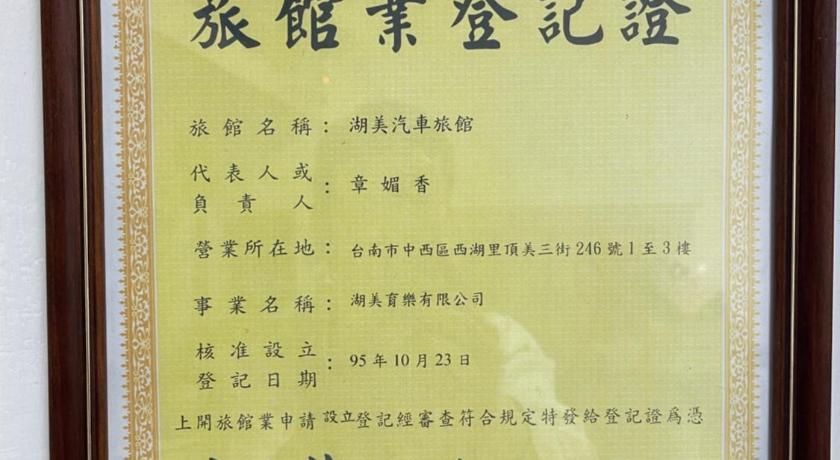 旅館業登記證
旅館名稱：湖美汽車旅館
代表人或
負責人：章媚香
營業所在地：台南市中西區西湖里頂美三街246號1至3樓
事業名稱：湖美育樂有限公司
核准設立
登記日期：95年10月23日
上開旅館業申請設立登記經審查符合規定特發給登記證為憑